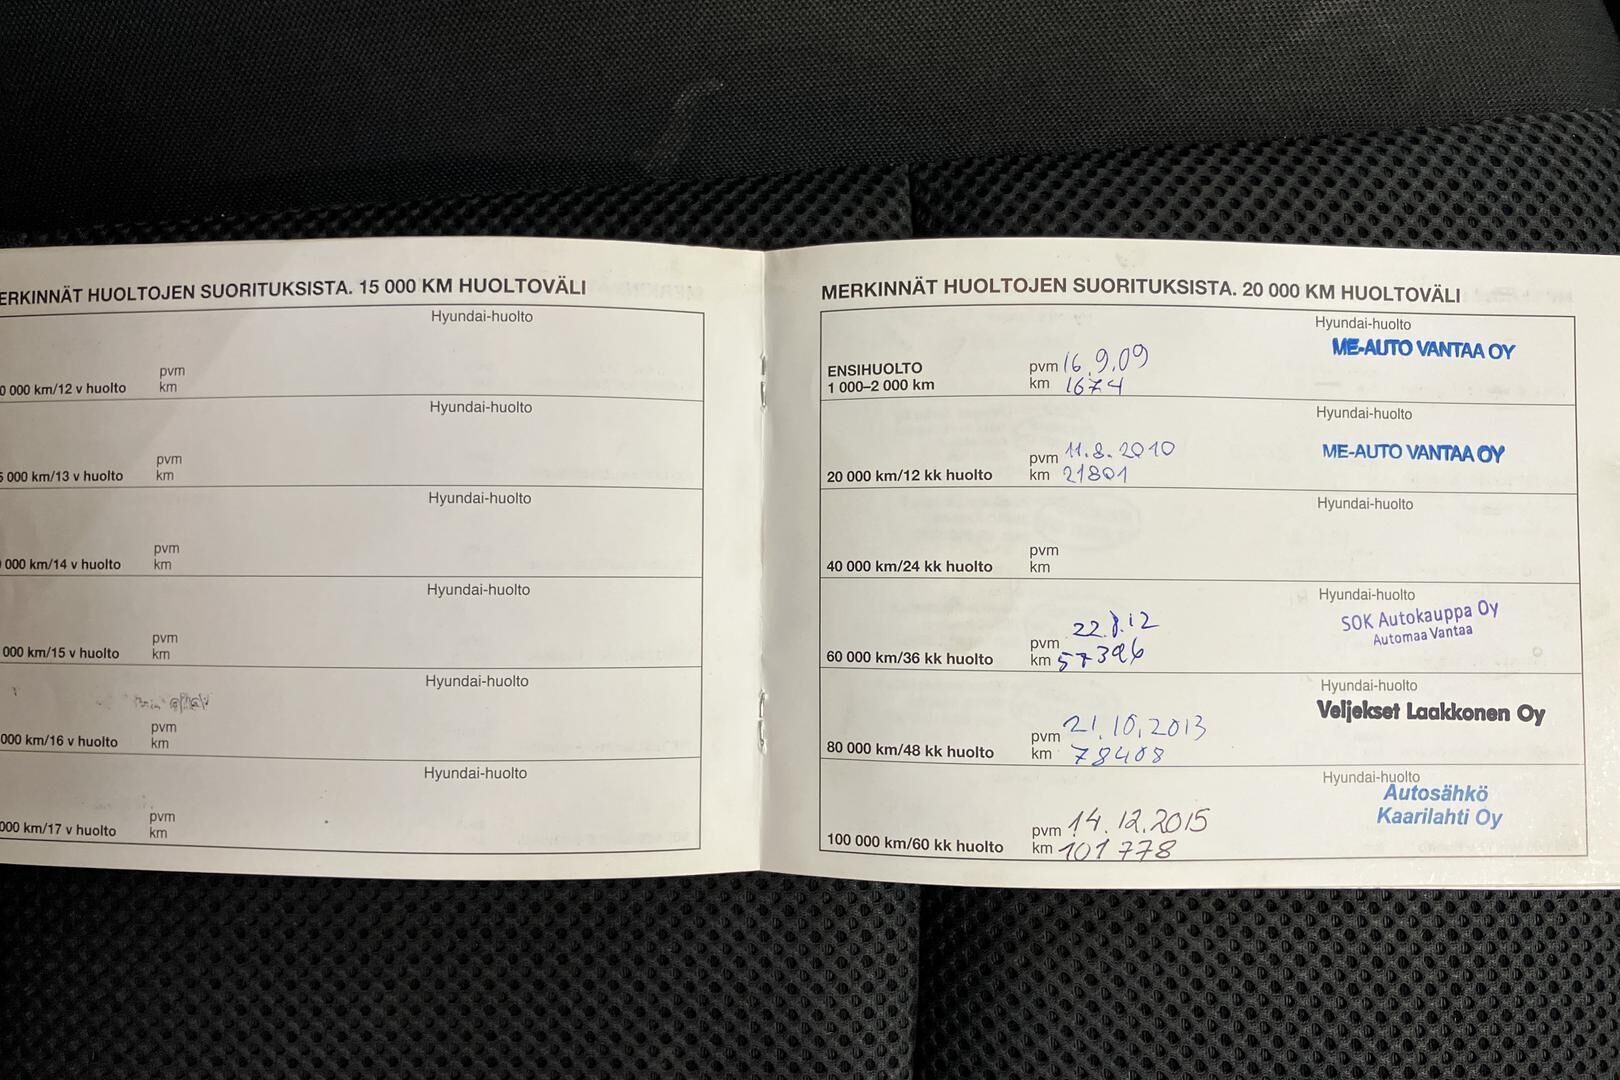 ERKINNÄT HUOLTOJEN SUORITUKSISTA. 15 000 KM HUOLTOVÄLI
Hyundai-huolto
pvm
0 000 km/12 v huolto km
Hyundai-huolto
pvm
5 000 km/13 v huolto km
Hyundai-huolto
pvm
000 km/14 v huolto km
Hyundai-huolto
pvm
000 km/15 v huolto km
Hyundai-huolto
pvm
000 km/16 v huolto km
Hyundai-huolto
pvm
000 km/17 v huolto km
MERKINNÄT HUOLTOJEN SUORITUKSISTA. 20 000 KM HUOLTOVÄLI
Hyundai-huolto
ME-AUTO VANTAA OY
ENSIHUOLTO pvm 16.9.09
1 000–2 000 km km 1674
Hyundai-huolto
ME-AUTO VANTAA OY
pvm 11.8.2010
20 000 km/12 kk huolto km 21801
Hyundai-huolto
pvm
40 000 km/24 kk huolto km
Hyundai-huolto
SOK Autokauppa Oy
Automaa Vantaa
pvm 22.8.12
60 000 km/36 kk huolto km 57396
Hyundai-huolto
Veljekset Laakkonen Oy
pvm 21.10.2013
80 000 km/48 kk huolto km 78408
Hyundai-huolto
Autosähkö
Kaarilahti Oy
pvm 14.12.2015
100 000 km/60 kk huolto km 101778